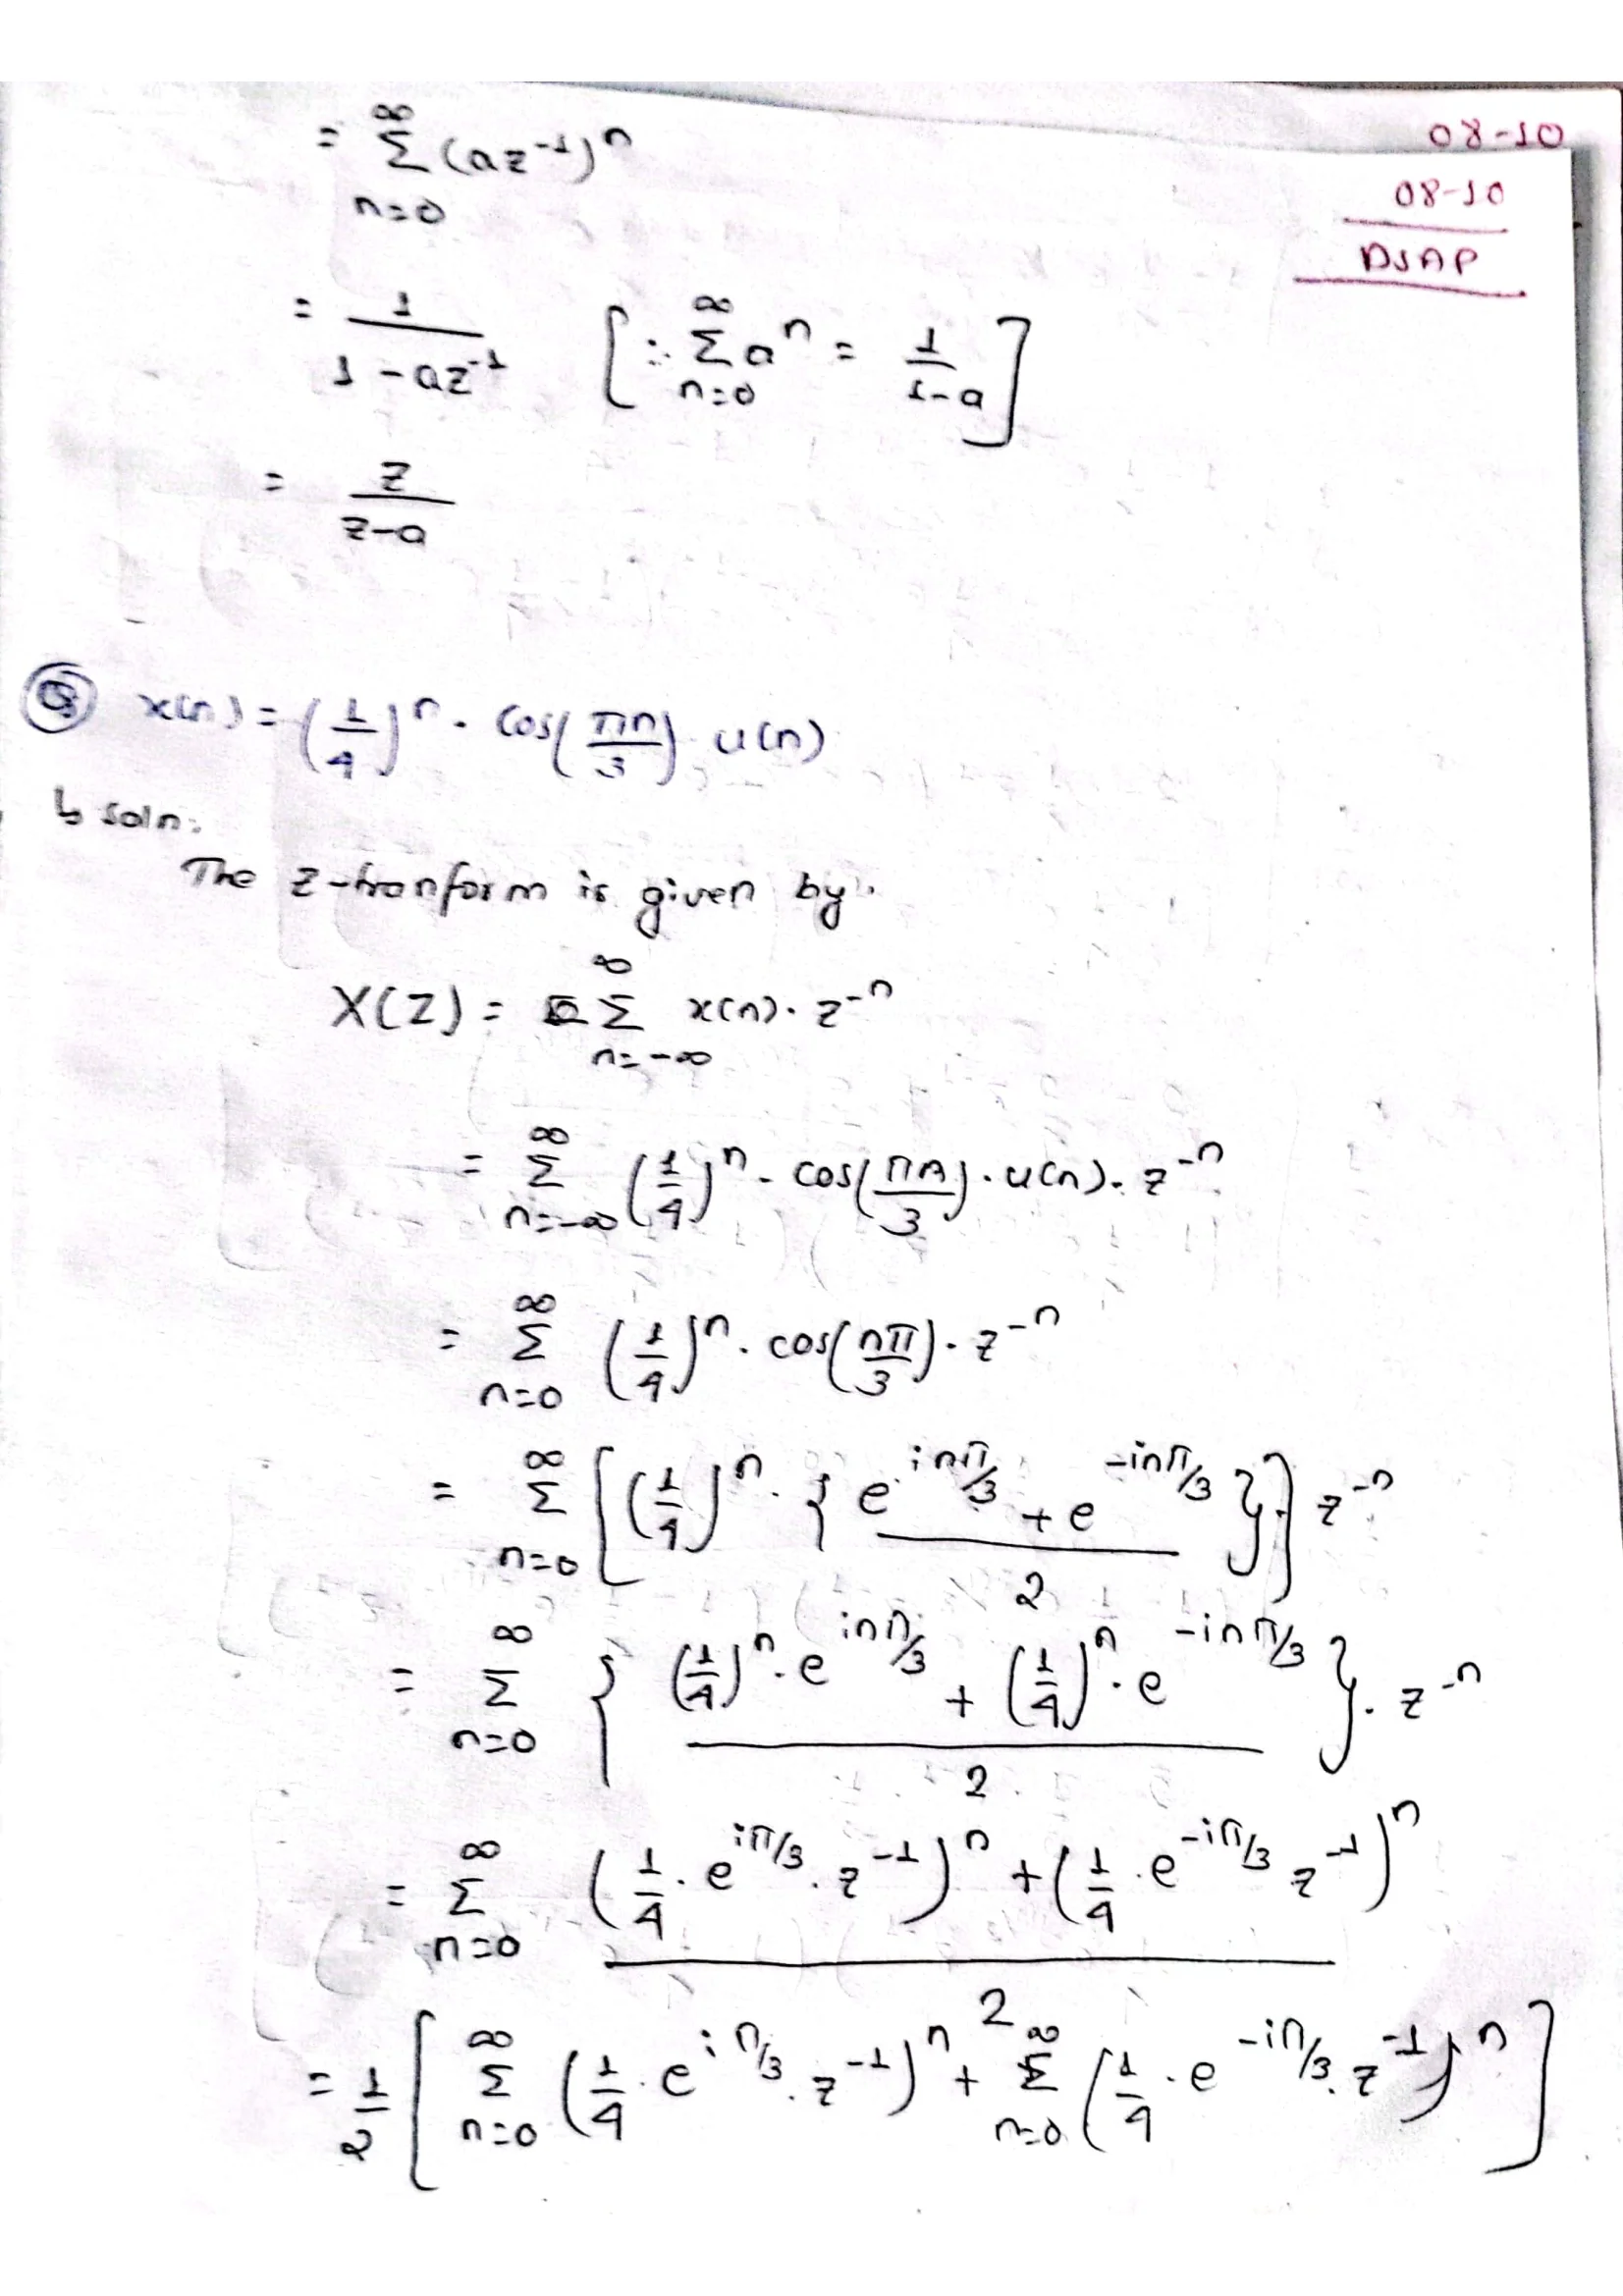 08-10
08-10
DSAP
= ∞Σn=0 (az⁻¹)ⁿ
= 1/(1-az⁻¹) [∵ ∞Σn=0 aⁿ = 1/(1-a)]
= z/(z-a)
Q x(n) = (1/4)ⁿ · cos(πn/3) u(n)
↳ soln:
The z-tranform is given by.
X(Z) = ∞Σn=-∞ x(n) · z⁻ⁿ
= ∞Σn=-∞ (1/4)ⁿ · cos(πn/3) · u(n) · z⁻ⁿ
= ∞Σn=0 (1/4)ⁿ · cos(nπ/3) · z⁻ⁿ
= ∞Σn=0 [(1/4)ⁿ · {(e^(inπ/3) + e^(-inπ/3))/2}] z⁻ⁿ
= ∞Σn=0 {((1/4)ⁿ · e^(inπ/3) + (1/4)ⁿ · e^(-inπ/3))/2} · z⁻ⁿ
= ∞Σn=0 ((1/4 · e^(iπ/3) · z⁻¹)ⁿ + (1/4 · e^(-iπ/3) z⁻¹)ⁿ)/2
= 1/2 [∞Σn=0 (1/4 · e^(iπ/3) · z⁻¹)ⁿ + ∞Σn=0 (1/4 · e^(-iπ/3) · z⁻¹)ⁿ]